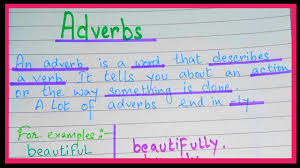 Adverbs
An adverb is a word that describes
a verb. It tells you about an action
or the way something is done.
A lot of adverbs end in -ly.
For examples:
beautiful beautifully.